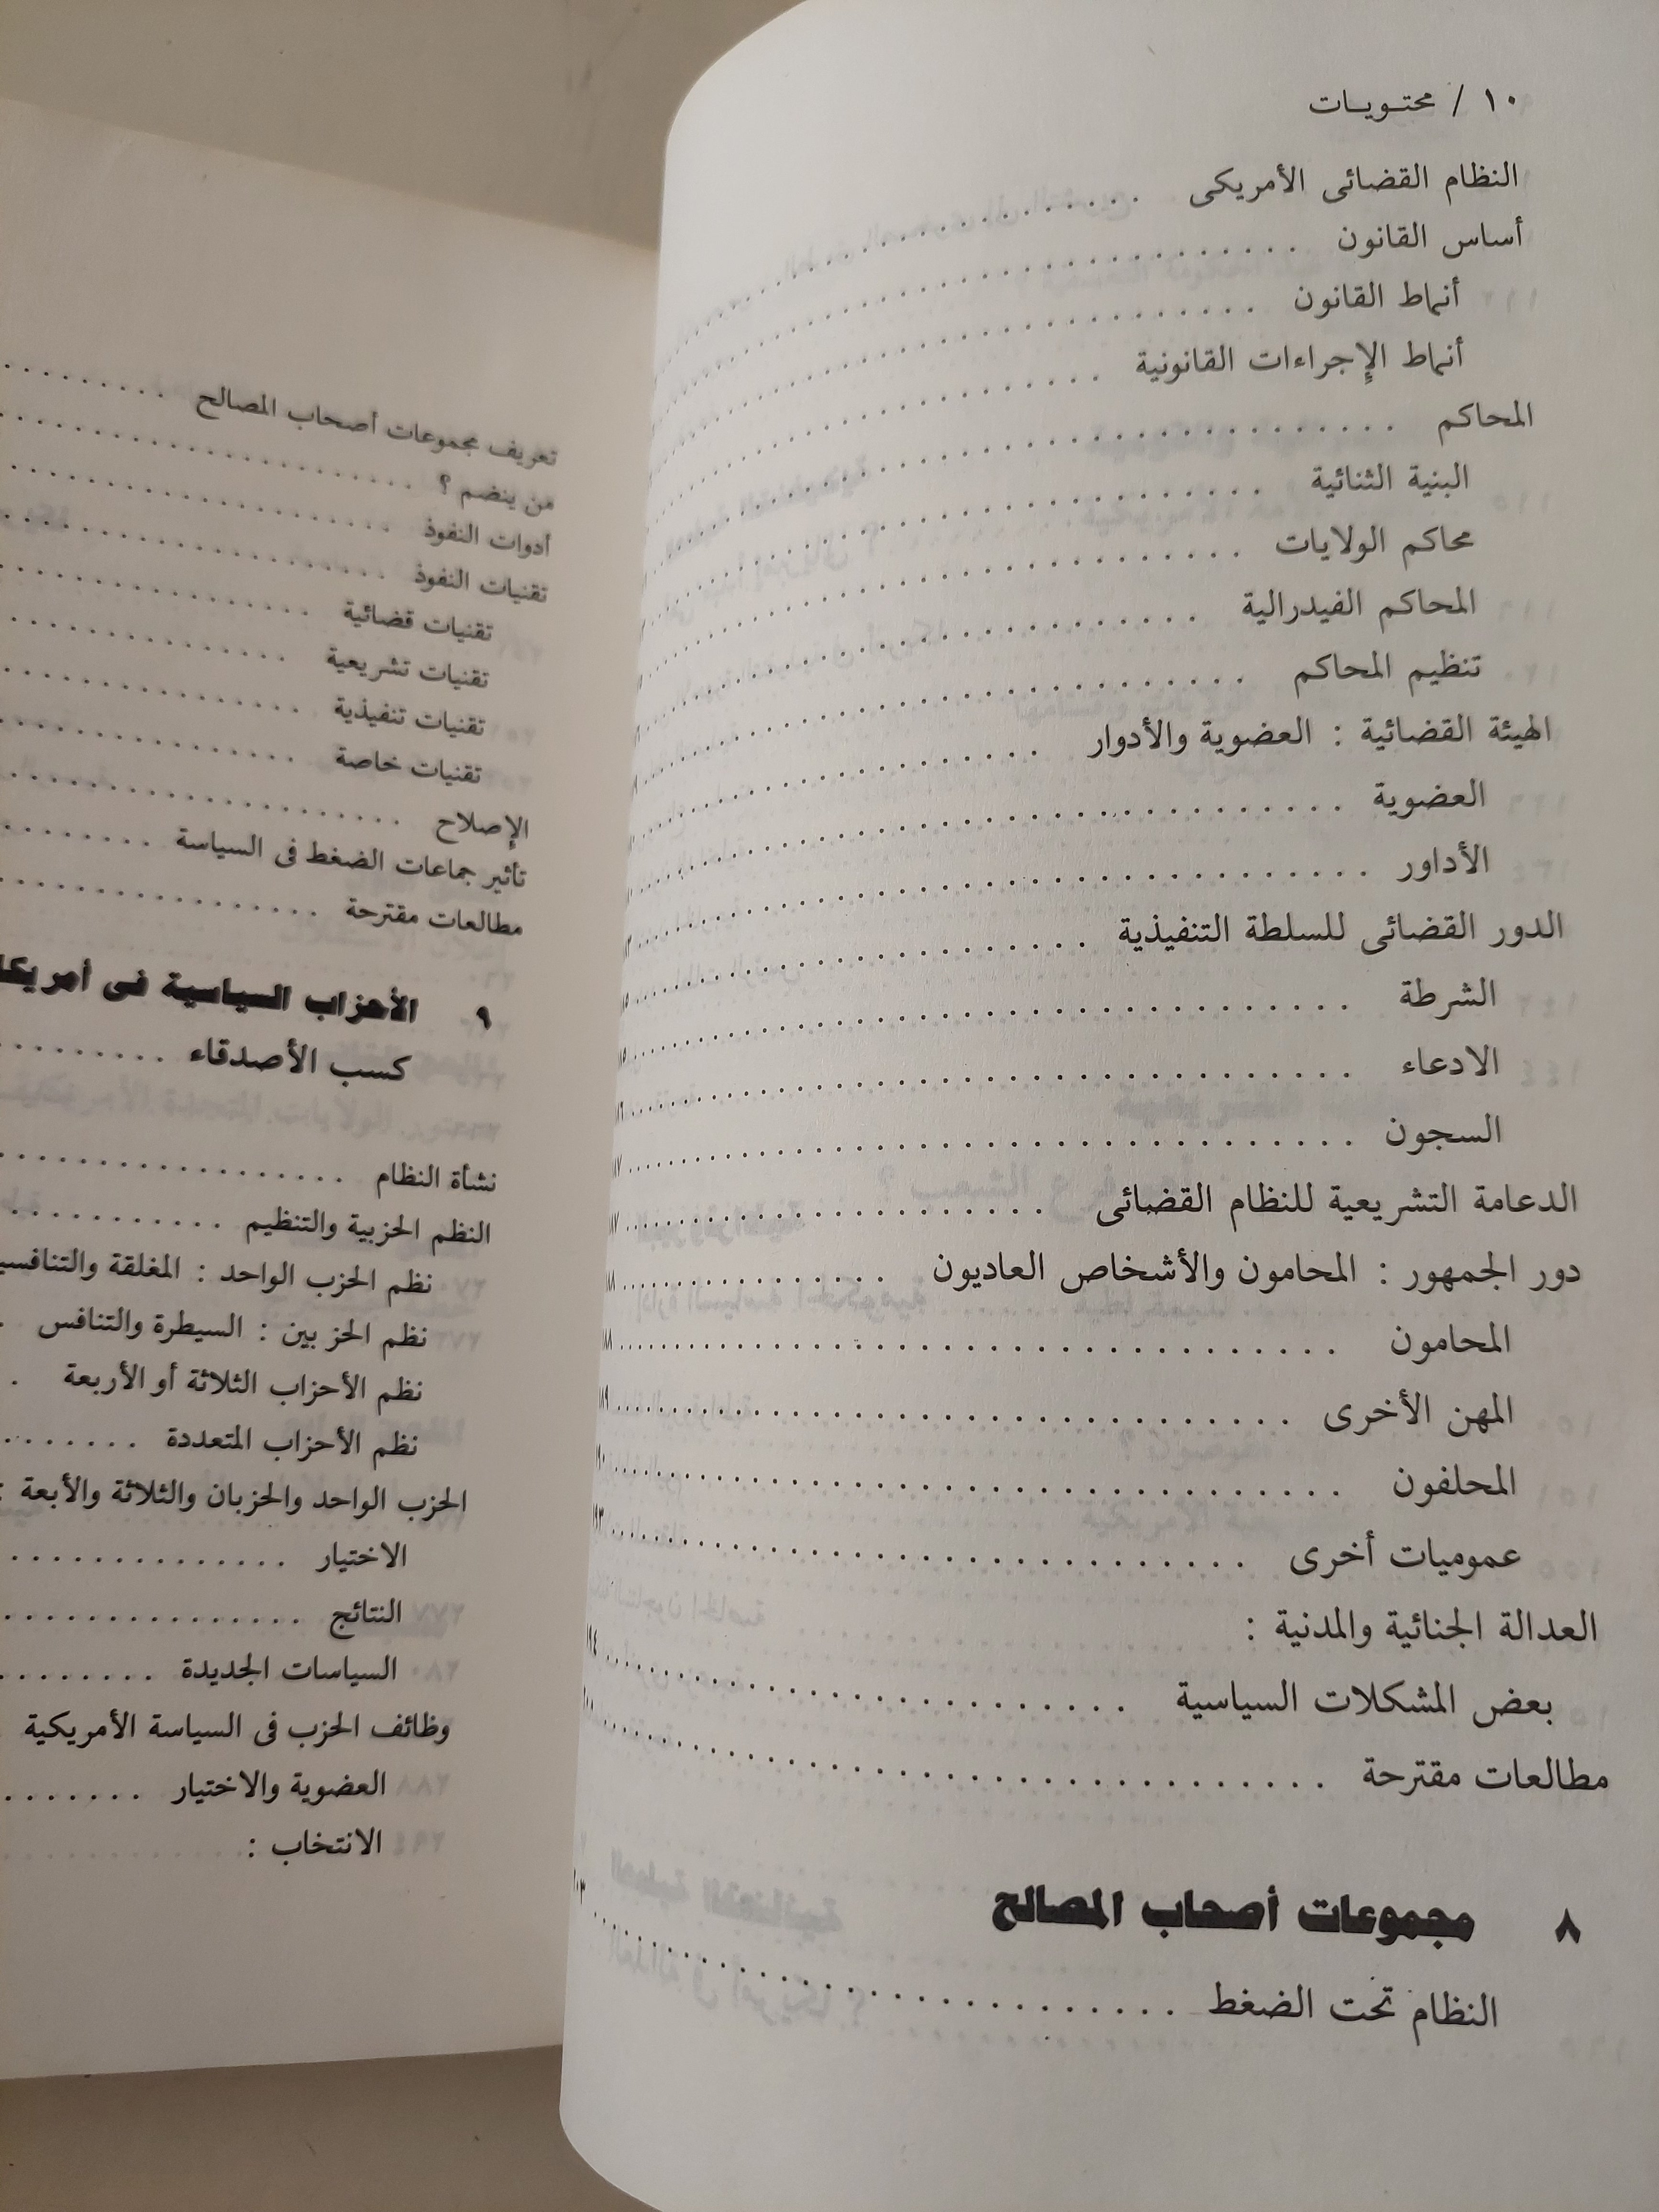 ١٠ / محتويات
النظام القضائى الأمريكى
أساس القانون
أنماط القانون
أنماط الإجراءات القانونية
المحاكم
البنية الثنائية
محاكم الولايات
المحاكم الفيدرالية
تنظيم المحاكم
الهيئة القضائية : العضوية والأدوار
العضوية
الأداور
الدور القضائى للسلطة التنفيذية
الشرطة
الادعاء
السجون
الدعامة التشريعية للنظام القضائى
دور الجمهور : المحامون والأشخاص العاديون
المحامون
المهن الأخرى
المحلفون
عموميات أخرى
العدالة الجنائية والمدنية :
بعض المشكلات السياسية
مطالعات مقترحة
٨ مجموعات أصحاب المصالح
النظام تحت الضغط
تعريف مجموعات أصحاب المصالح
من ينضم ؟
أدوات النفوذ
تقنيات النفوذ
تقنيات قضائية
تقنيات تشريعية
تقنيات تنفيذية
تقنيات خاصة
الإصلاح
تأثير جماعات الضغط فى السياسة
مطالعات مقترحة
٩ الأحزاب السياسية فى أمريكا
كسب الأصدقاء
نشأة النظام
النظم الحزبية والتنظيم
نظم الحزب الواحد : المغلقة
نظم الحز بين : السيطرة والتنافس
نظم الأحزاب الثلاثة أو الأربعة
نظم الأحزاب المتعددة
الحزب الواحد والحزبان والثلاثة والأبعة :
الاختيار
النتائج
السياسات الجديدة
وظائف الحزب فى السياسة الأمريكية
العضوية والاختيار
الانتخاب :